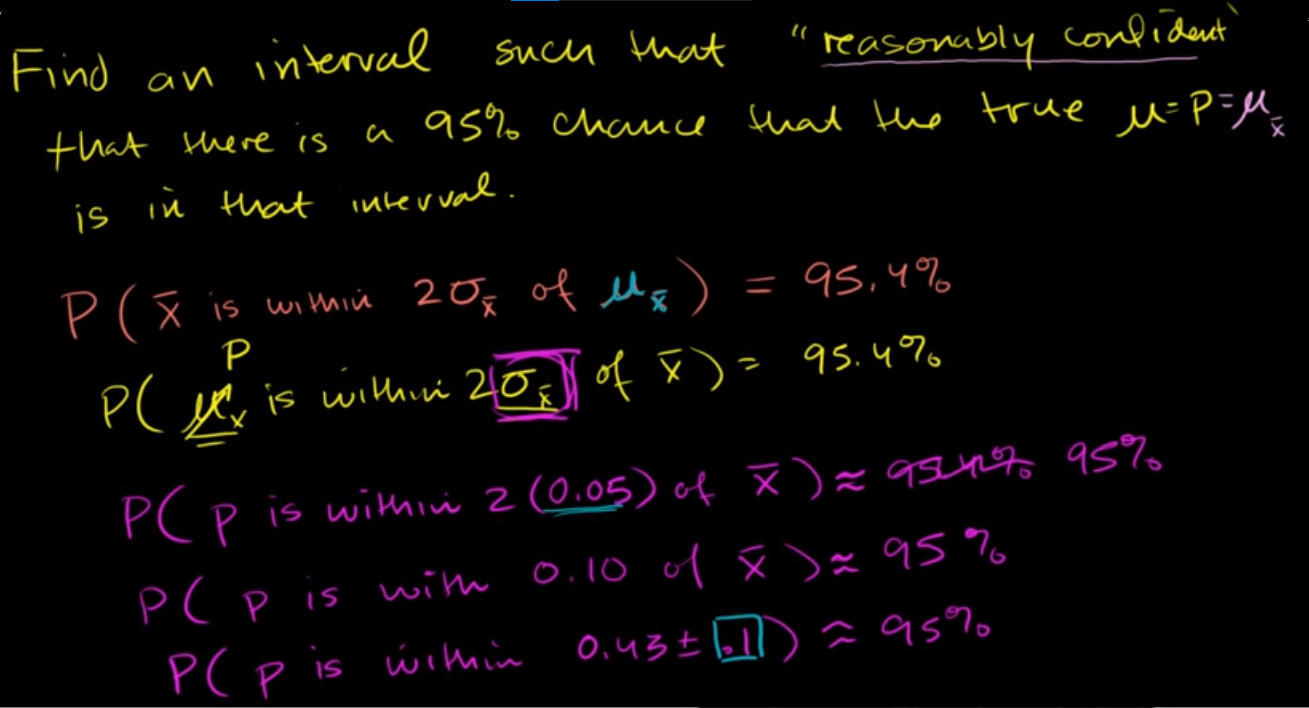 Find an interval such that "reasonably confident"
that there is a 95% chance that the true μ=P=μx̄
is in that interval.
P(x̄ is within 2σx̄ of μx̄) = 95.4%
P
P(μx is within 2σx̄ of x̄) = 95.4%
P(p is within 2(0.05) of x̄) ≈ 95.4% 95%
P(p is with 0.10 of x̄) ≈ 95%
P(p is within 0.43±.1) ≈ 95%